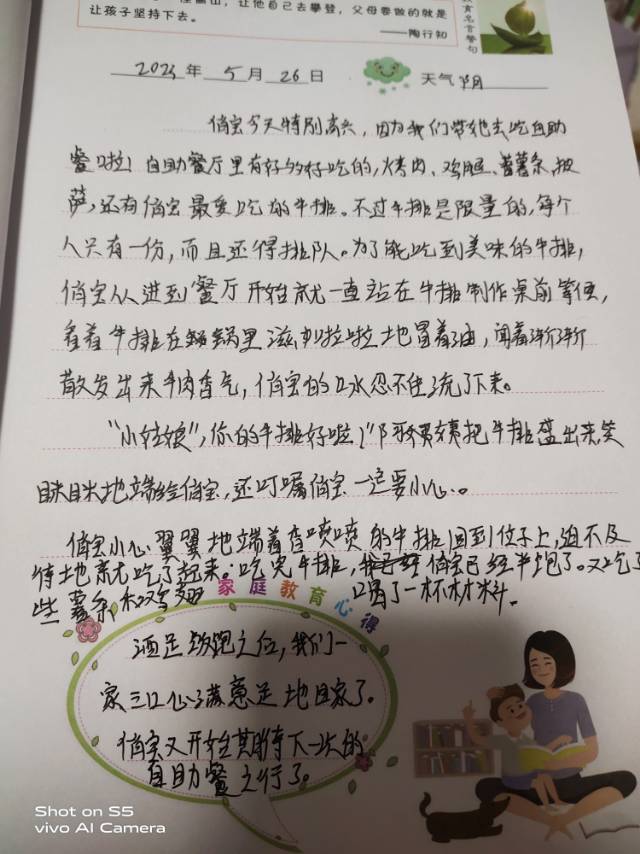 让他自己去攀登，父母要做的就是
让孩子坚持下去。
——陶行知
教育名言警句
2023年5月26日 天气 阴
俏宝今天特别高兴，因为我们带他去吃自助
餐啦！自助餐厅里有好多好吃的，烤肉、鸡腿、薯条、披
萨，还有俏宝最爱吃的牛排。不过牛排是限量的，每个
人只有一份，而且还得排队。为了能吃到美味的牛排，
俏宝从进到餐厅开始就一直站在牛排制作桌前等候，
看着牛排在锅里滋啦啦地冒着油，闻着渐渐
散发出来牛肉香气，俏宝的口水忍不住流了下来。
“小姑娘”，你的牛排好啦！”阿姨把牛排盛出来，笑
眯眯地端给俏宝，还叮嘱俏宝一定要小心。
俏宝小心翼翼地端着香喷喷的牛排回到位子上，迫不及
待地就吃了起来。吃完牛排，俏宝已经半饱了。又吃了
些薯条和鸡翅 喝了一杯材料。
家庭教育心得
酒足饭跑之位，我们一
家三口心满意足地回家了。
俏宝又开始期待下一次的
自助餐之行了。
Shot on S5
vivo AI Camera